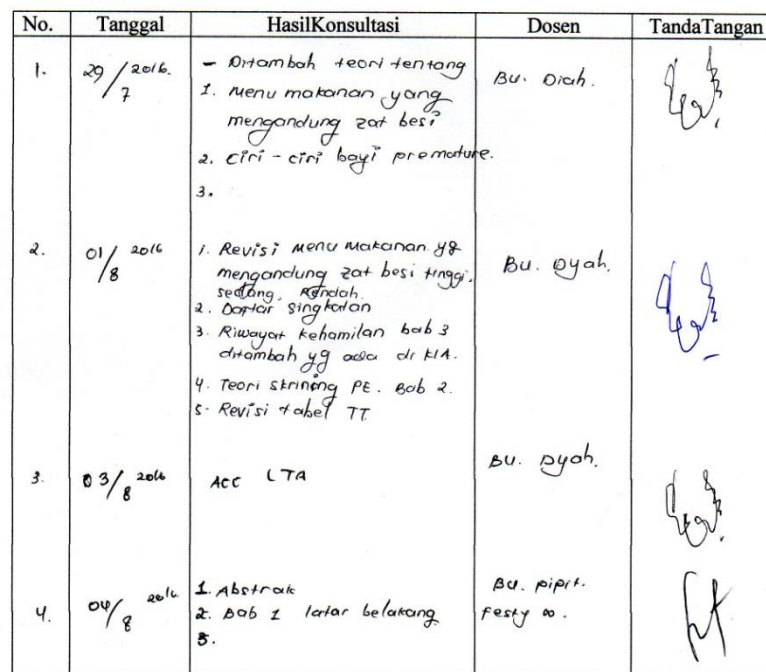 No. Tanggal HasilKonsultasi Dosen TandaTangan
1. 29/7 2016. - Ditambah teori tentang Bu. Diah.
1. Menu makanan yang
mengandung zat besi
2. Ciri-ciri bayi premature.
3.
2. 01/8 2016 1. Revisi Menu Makanan yg Bu. Dyah.
mengandung zat besi tinggi,
sedang, Rendah.
2. Daftar singkatan
3. Riwayat kehamilan bab 3
ditambah yg ada di KIA.
4. Teori skrining PE. Bab 2.
5. Revisi tabel TT
3. 03/8 2016 ACC LTA Bu. Dyah.
4. 04/8 2016 1. Abstrak Bu. Pipit.
2. Bab 1 latar belakang Festy
3.